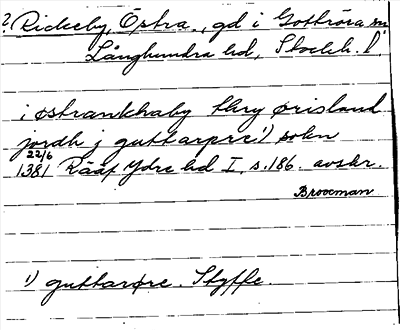 ? Rickeby, Östra, gd i Gottröra sn
Långhundra hd, Stockh. l.
i østrankhaby thry ørisland
jordh j guttarpre¹) sokn
22/6
1381 Rääf Ydre hd I, s. 186. avskr.
Brocman
¹) guttarøre. Styffe.